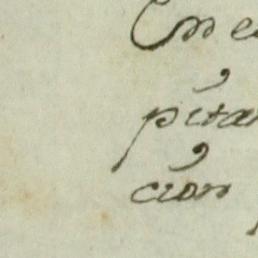 En e
pita
cion